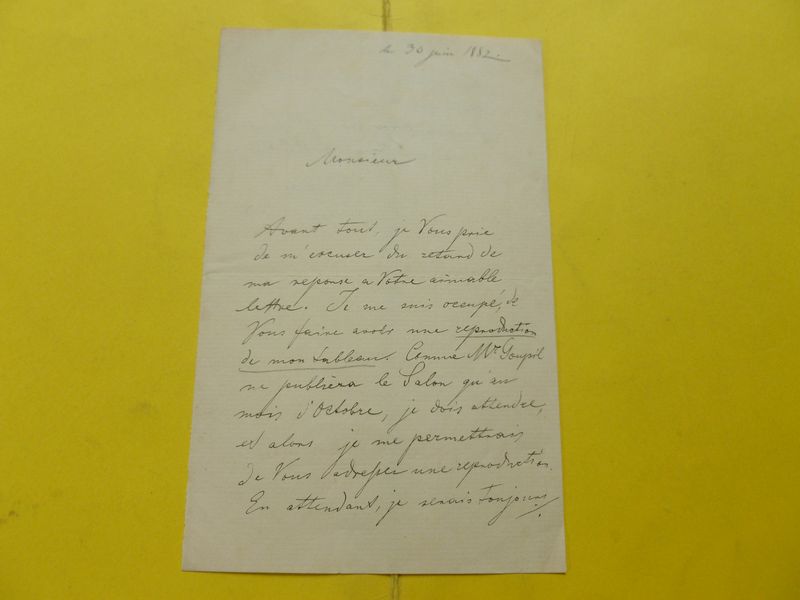 le 30 juin 1882
Monsieur
Avant tout, je Vous prie
de m'excuser du retard de
ma reponse a Votre aimable
lettre. Je me suis occupé, de
Vous faire avoir une reproduction
de mon tableau. Comme Mr Goupil
ne publiera le Salon qu'au
mois d'Octobre, je dois attendre,
et alors je me permettrais
de Vous adresser une reproduction.
En attendant, je serais toujours